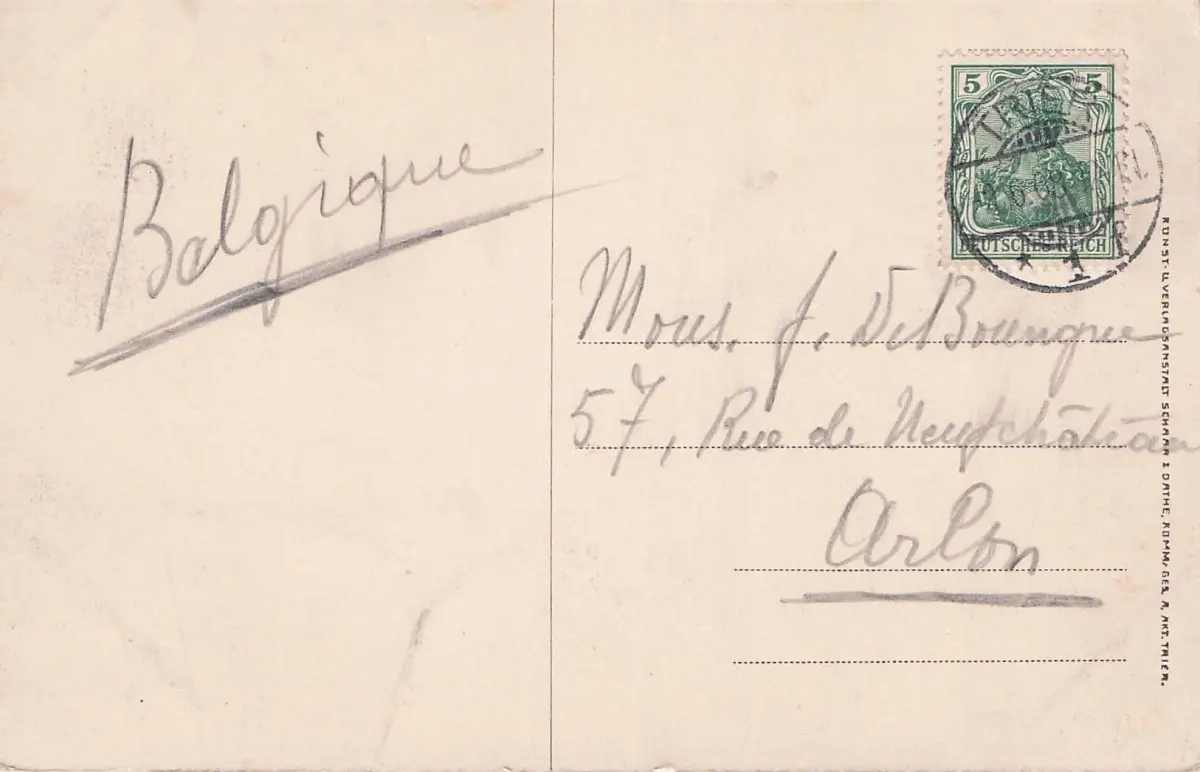 Belgique
5 5
TRIER
DEUTSCHES REICH
* 1 f
Mons. J. DeBourgue
57, Rue de Neufchâteau
Arlon
KUNST- U. VERLAGSANSTALT SCHAAR & DATHE, KOMM. GES. A. AKT. TRIER.